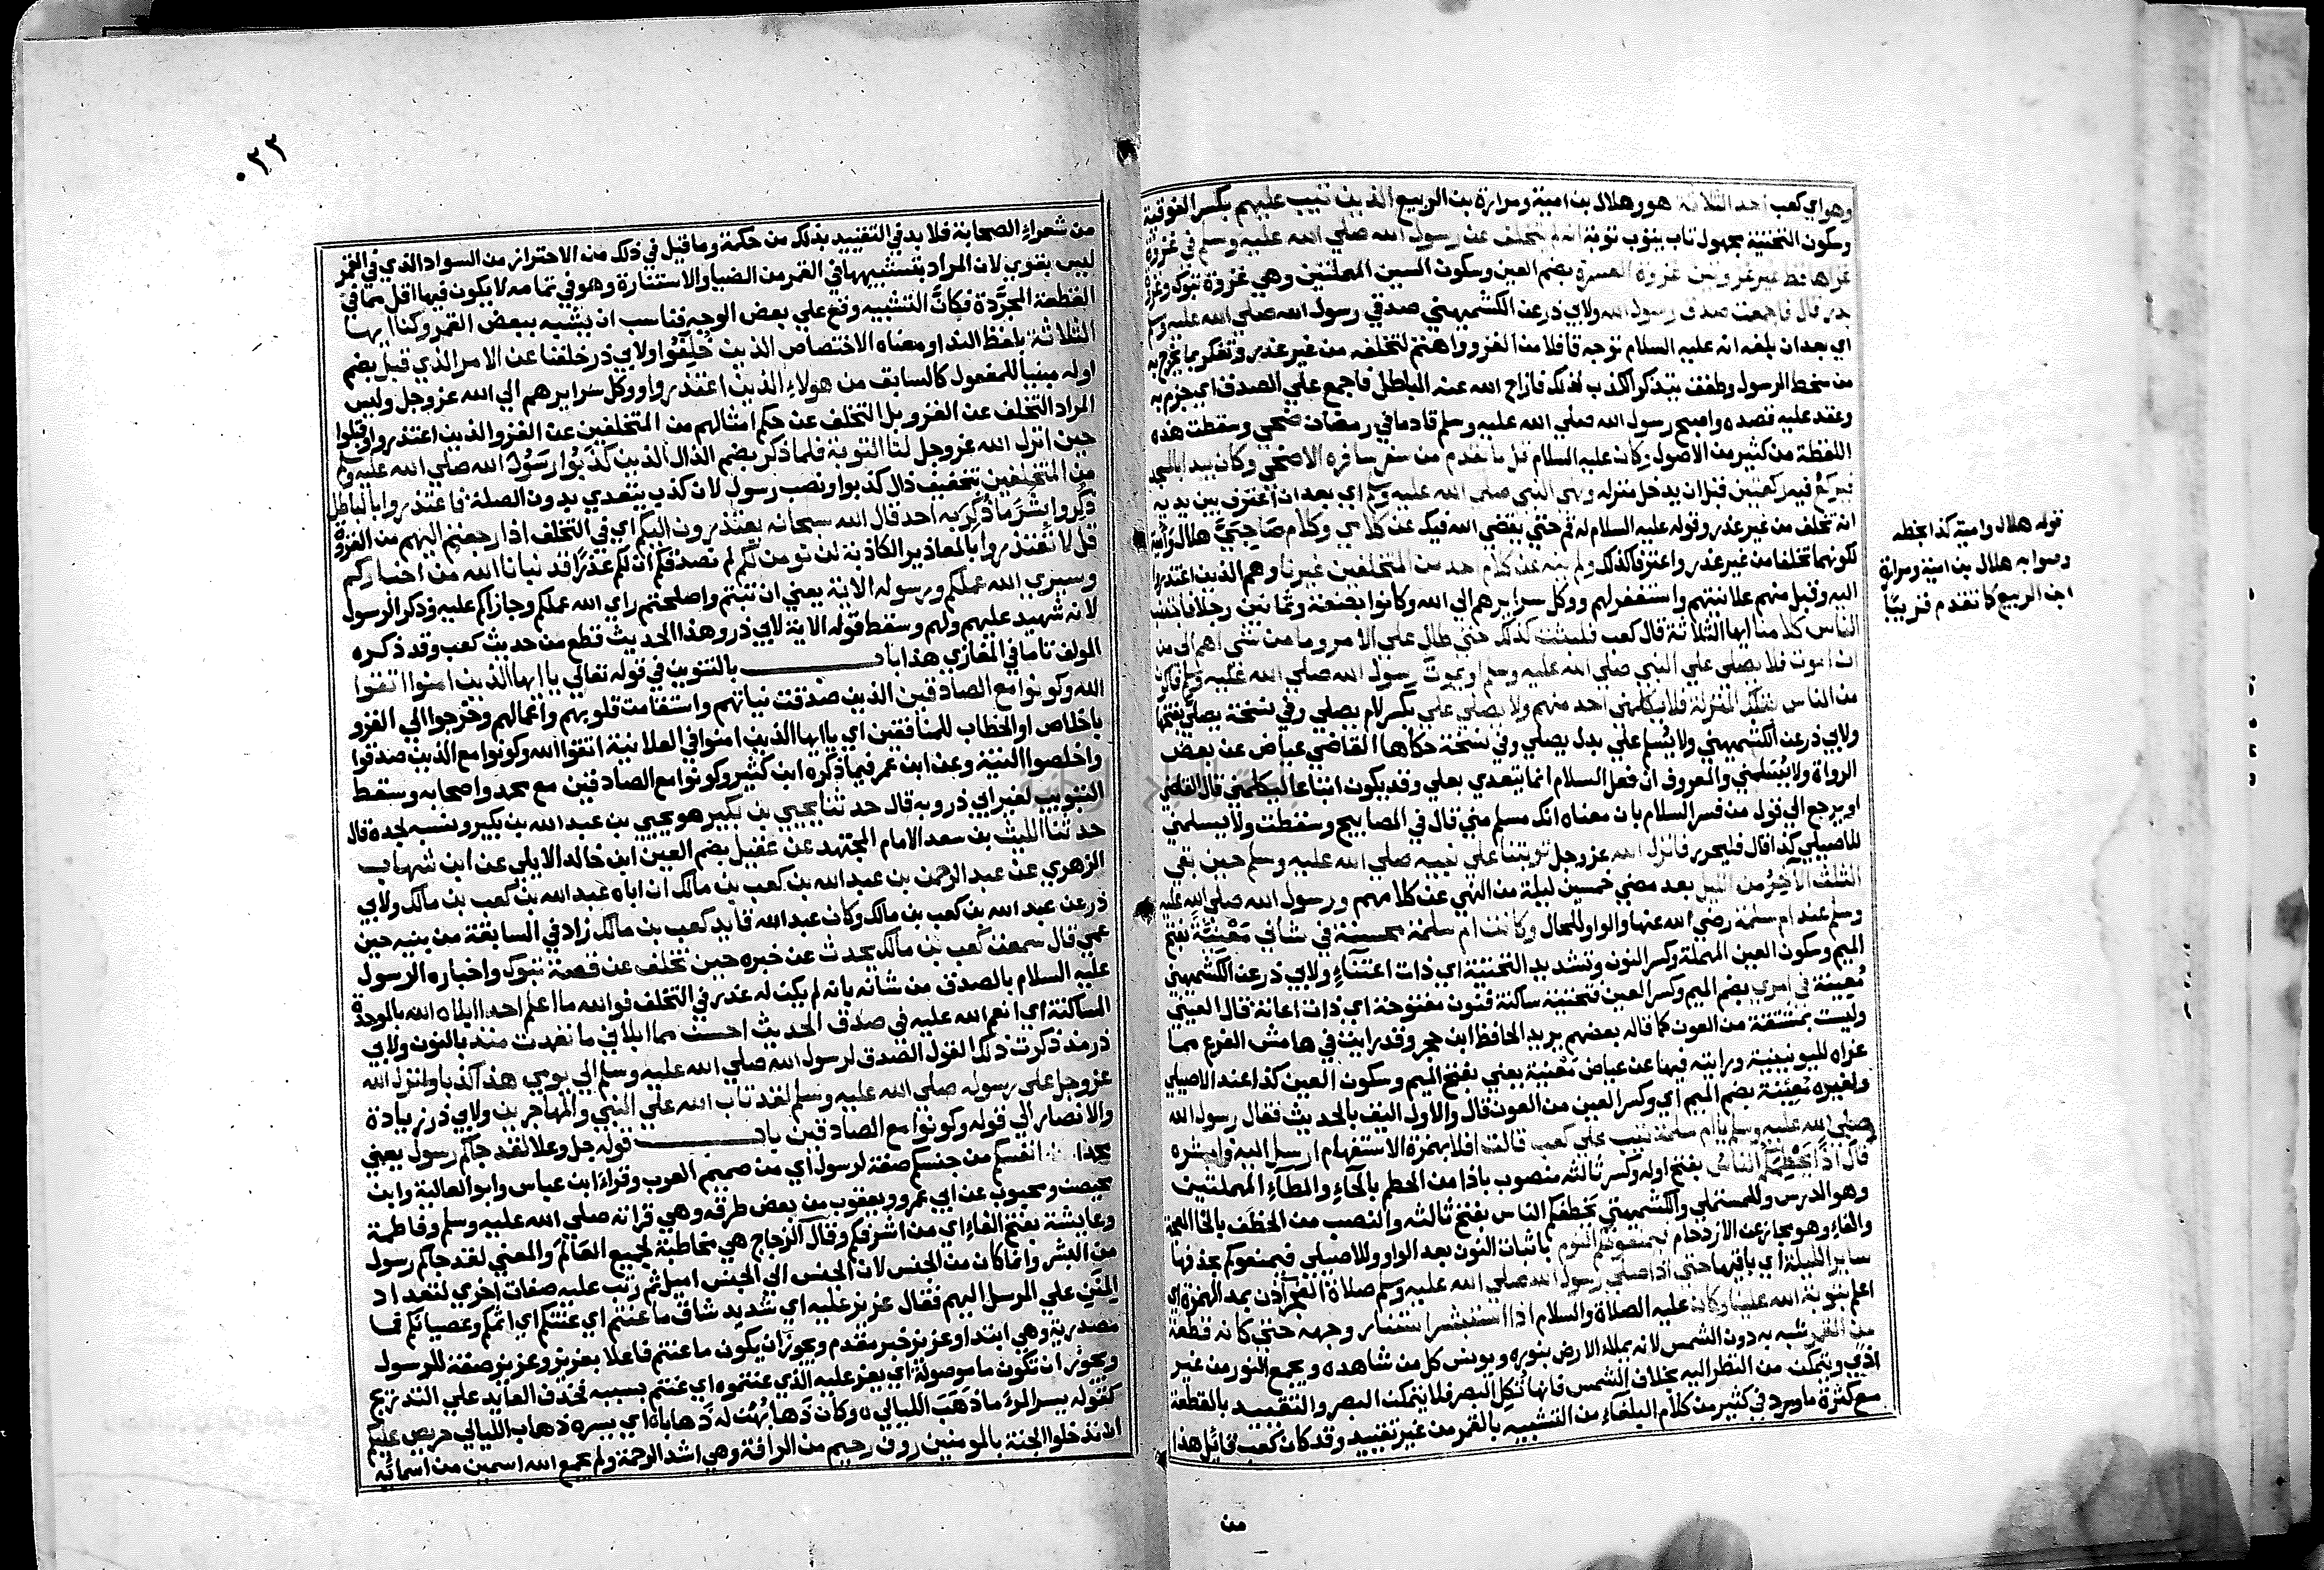 وهو اي كعب احد الثلاثة هو وهلال بن امية ومرارة بن الربيع الذين تيب عليهم بكسر الفوقية
وسكون التحتية مجهول تاب يتوب توبة انه لم يتخلف عن رسول الله صلي الله عليه وسلم في غزوة
غزاها قط غير غزوتين غزوة العسرة بضم العين وسكون السين المهملتين وهي غزوة تبوك وغزوة
بدر قال فاجمعت صدق رسول الله ولابي ذر عن الكشميهني صدقي رسول الله صلي الله عليه وسلم
اي بعد ان بلغه انه عليه السلام توجه قافلا من الغزو واهتم لتخلفه من غير عذر وتفكر بما يخرج به
من سخط الرسول وطفق يتذكر الكذب لذلك فازاح الله عنه الباطل فاجمع علي الصدق اي جزم به
وعقد عليه قصده واصبح رسول الله صلي الله عليه وسلم قادما في رمضان ضحي وسقطت هذه
اللفظة من كثير من الاصول وكان عليه السلام قل ما يقدم من سفر سافره الا ضحي وكان يبدا بالمسجد
فيركع فيه ركعتين قبل ان يدخل منزله ونهي النبي صلي الله عليه وسلم اي بعد ان اعترف بين يديه
انه تخلف من غير عذر وقوله عليه السلام له قم حتي يقضي الله فيك عن كلامي وكلام صاحبي هلال ومرارة
لكونهما تخلفا من غير عذر واعترفا كذلك ولم ينه عن كلام احد من المتخلفين غيرنا وهم الذين اعتذروا
اليه وقبل منهم علانيتهم واستغفر لهم ووكل سرايرهم الي الله وكانوا بضعة وثمانين رجلا فاجتنب
الناس كلامنا ايها الثلاثة قال كعب فلبثت كذلك حتي طال علي الامر وما من شي اهم الي من
ان اموت فلا يصلي علي النبي صلي الله عليه وسلم او يموت رسول الله صلي الله عليه وسلم فاكون
من الناس بتلك المنزلة فلا يكلمني احد منهم ولا يصلي علي بكسر لام يصلي وفي نسخة يصلي بفتحها
ولابي ذر عن الكشميهني ولا يسلم علي بدل يصلي وفي نسخة حكاها القاضي عياض عن بعض
الرواة ولا يسلمني والمعروف ان فعل السلام انما يتعدي بعلي وقد يكون اتباعا ليكلمني قال القاضي
او يرجع الي قول من فسر السلام بان معناه انك مسلم مني قال في المصابيح وسقطت ولا يسلمني
للاصيلي كذا قال فليحرر فانزل الله عز وجل توبتنا علي نبيه صلي الله عليه وسلم حين بقي
الثلث الآخر من الليل بعد مضي خمسين ليلة من النهي عن كلامهم ورسول الله صلي الله عليه
وسلم عند ام سلمة رضي الله عنها والواو للحال وكانت ام سلمة محسنة في شاني معنية بفتح
الميم وسكون العين المهملة وكسر النون وتشديد التحتية اي ذات اعتناء ولابي ذر عن الكشميهني
معينة في امري بضم الميم وكسر العين فتحتية ساكنة فنون مفتوحة اي ذات اعانة قال العيني
وليست بمشتقة من العون كما قاله بعضهم يريد الحافظ ابن حجر وقد رايت في هامش الفرع مما
عزاه لليونينية ورايته فيها عن عياض معنية يعني بفتح الميم وسكون العين كذا عند الاصيلي
ولغيره معينة بضم الميم اي وكسر العين من العون قال والاول اليق بالحديث فقال رسول الله
صلي الله عليه وسلم يا ام سلمة تيب علي كعب قالت افلا بهمزة الاستفهام ارسل اليه فابشره
قال اذا يحطمكم الناس بفتح اوله وكسر ثالثه منصوب باذا من الحطم بالحاء والطاء المهملتين
وهو الدوس وللمستملي والكشميهني يخطفكم الناس بفتح ثالثه والنصب من الخطف بالخا المعجمة
والفاء وهو مجاز عن الازدحام فيمنعونكم النوم باثبات النون بعد الواو وللاصيلي فيمنعوكم بحذفها
ساير الليلة اي باقيها حتي اذا صلي رسول الله صلي الله عليه وسلم صلاة الفجر آذن بمد الهمزة اي
اعلم بتوبة الله علينا وكان عليه الصلاة والسلام اذا استبشر استنار وجهه حتي كانه قطعة
من القمر شبه به دون الشمس لانه يملا الارض بنوره ويونس كل من شاهده ويجمع النور من غير
اذي ويتمكن من النظر اليه بخلاف الشمس فانها تكل البصر فلا يتمكن البصر والتقييد بالقطعة
مع كثرة ما ورد في كثير من كلام البلغاء من التشبيه بالقمر من غير تقييد وقد كان كعب قائل هذا
من
قوله هلال وامية كذا بخطه
وصوابه هلال بن امية ومرارة
ابن الربيع كما تقدم قريبا
٠٢٢
من شعراء الصحابة فلا بد في التقييد بذلك من حكمة وما قيل في ذلك من الاحتراز من السواد الذي في القمر
ليس بقوي لان المراد بتشبيهها في القمر من الضيا والاستنارة وهو في تمامه لا يكون فيها اقل مما في
القطعة المجردة فكان التشبيه وقع علي بعض الوجه فناسب ان يشبه ببعض القمر وكنا ايها
الثلاثة بلفظ الندا ومعناه الاختصاص الذين خلفوا ولابي ذر خلفنا عن الامر الذي قبل بضم
اوله مبنيا للمفعول كالسابق من هولاء الذين اعتذروا ووكل سرايرهم الي الله عز وجل وليس
المراد التخلف عن الغزو بل التخلف عن حكم امثالهم من المتخلفين عن الغزو الذين اعتذروا وقبلوا
حين انزل الله عز وجل لنا التوبة فلما ذكر بضم الذال الذين كذبوا رسول الله صلي الله عليه وسلم
من المتخلفين بتخفيف ذال كذبوا ونصب رسول لان كذب يتعدي بدون الصلة فاعتذروا بالباطل
ذكروا بشر ما ذكر به احد قال الله سبحانه يعتذرون اليكم اي في التخلف اذا رجعتم اليهم من الغزو
قل لا تعتذروا بالمعاذير الكاذبة لن نومن لكم لن نصدقكم ان لكم عذرا قد نبانا الله من اخباركم
وسيري الله عملكم ورسوله الاية يعني ان تبتم واصلحتم راي الله عملكم وجازاكم عليه وذكر الرسول
لانه شهيد عليهم ولهم وسقط قوله الاية لابي ذر وهذا الحديث قطع من حديث كعب وقد ذكره
المولف تاما في المغازي هذا باب بالتنوين في قوله تعالي يا ايها الذين امنوا اتقوا
الله وكونوا مع الصادقين الذين صدقت نياتهم واستقامت قلوبهم واعمالهم وخرجوا الي الغزو
باخلاص او الخطاب للمنافقين اي يا ايها الذين امنوا في العلانية اتقوا الله وكونوا مع الذين صدقوا
واخلصوا النية وعن ابن عمر فيما ذكره ابن كثير وكونوا مع الصادقين مع محمد واصحابه وسقط
التبويب لغير ابي ذر وبه قال حدثنا يحيي بن بكير هو يحيي بن عبد الله بن بكير ونسبه لجده قال
حدثنا الليث بن سعد الامام المجتهد عن عقيل بضم العين ابن خالد الايلي عن ابن شهاب
الزهري عن عبد الرحمن بن عبد الله بن كعب بن مالك ان اباه عبد الله بن كعب بن مالك ولابي
ذر عن عبد الله بن كعب بن مالك وكان عبد الله قايد كعب بن مالك زاد في السابقة من بنيه حين
عمي قال سمعت كعب بن مالك يحدث عن خبره حين تخلف عن قصة تبوك واخباره الرسول
عليه السلام بالصدق من شانه بانه لم يكن له عذر في التخلف فوالله ما اعلم احدا ابلاه الله بالموحدة
الساكنة اي انعم الله عليه في صدق الحديث احسن مما ابلاني ما تعمدت منذ بالنون ولابي
ذر مذ ذكرت ذلك القول الصدق لرسول الله صلي الله عليه وسلم الي يومي هذا كذبا وانزل الله
عز وجل علي رسوله صلي الله عليه وسلم لقد تاب الله علي النبي والمهاجرين ولابي ذر زيادة
والانصار الي قوله وكونوا مع الصادقين باب قوله جل وعلا لقد جاكم رسول يعني
محمدا من انفسكم من جنسكم صفة لرسول اي من صميم العرب وقراءة ابن عباس وابو العالية وابن
محيصن ومحبوب عن ابي عمرو ويعقوب من بعض طرقه وهي قراته صلي الله عليه وسلم وفاطمة
وعايشة بفتح الفاء اي من اشرفكم وقال الزجاج هي مخاطبة لجميع العالم والمعني لقد جاكم رسول
من البشر وانما كان من الجنس لان الجنس الي الجنس اميل ثم رتب عليه صفات اخري لتعداد
المنن علي المرسل اليهم فقال عزيز عليه اي شديد شاق ما عنتم اي عنتكم اي اثمكم وعصيانكم فما
مصدرية وهي ابتدا وعزيز خبر مقدم ويجوز ان يكون ما عنتم فاعلا بعزيز وعزيز صفة للرسول
ويجوز ان تكون ما موصولة اي يعز عليه الذي عنتموه اي عنتم بسببه فحذف العايد علي التدريج
كقوله يسر المرء ما ذهب الليالي ه وكان ذهابهن له ذهابا ه اي يسره ذهاب الليالي حريص عليكم
ان تدخلوا الجنة بالمومنين روف رحيم من الرافة وهي اشد الرحمة ولم يجمع الله اسمين من اسمائه